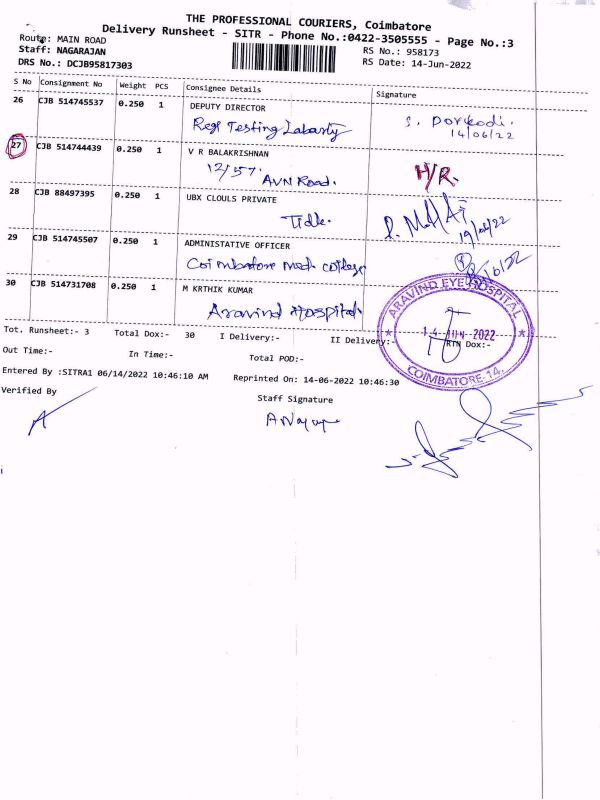 THE PROFESSIONAL COURIERS, Coimbatore
Delivery Runsheet - SITR - Phone No.:0422-3505555 - Page No.:3
Route: MAIN ROAD
RS No.: 958173
Staff: NAGARAJAN
RS Date: 14-Jun-2022
DRS No.: DCJB95817303
S No Consignment No Weight PCS Consignee Details Signature
26 CJB 514745537 0.250 1 DEPUTY DIRECTOR
Regl Testing Labarty S. Porkodi.
14/06/22
27 CJB 514744439 0.250 1 V R BALAKRISHNAN
12/57. AVN Road. H/R.
28 CJB 88497395 0.250 1 UBX CLOULS PRIVATE
Tidle.
29 CJB 514745507 0.250 1 ADMINISTATIVE OFFICER
Coimbatore med college
30 CJB 514731708 0.250 1 M KRTHIK KUMAR
Aravind Hospital
ARAVIND EYE HOSPITAL
14 JUN 2022
COIMBATORE-14.
Tot. Runsheet:- 3 Total Dox:- 30 I Delivery:- II Delivery:- RTN Dox:-
Out Time:- In Time:- Total POD:-
Entered By :SITRA1 06/14/2022 10:46:10 AM Reprinted On: 14-06-2022 10:46:30
Verified By Staff Signature